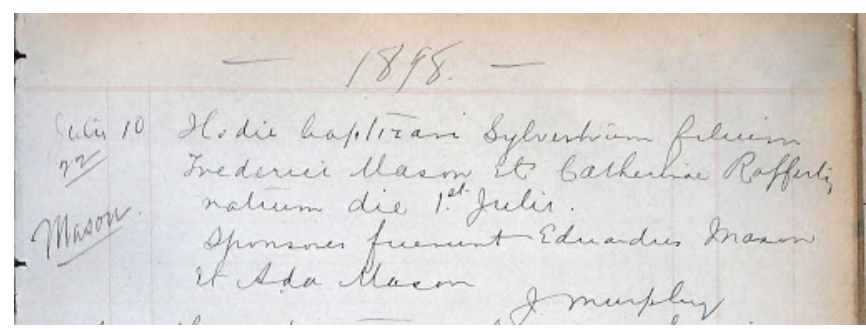 — 1898. —
Julii 10 Hodie baptizavi Sylvestrum filium
22 Frederici Mason et Catherinae Rafferty
natum die 1st Julii.
Mason. Sponsores fuerunt Eduardus Mason
et Ada Mason
J Murphy